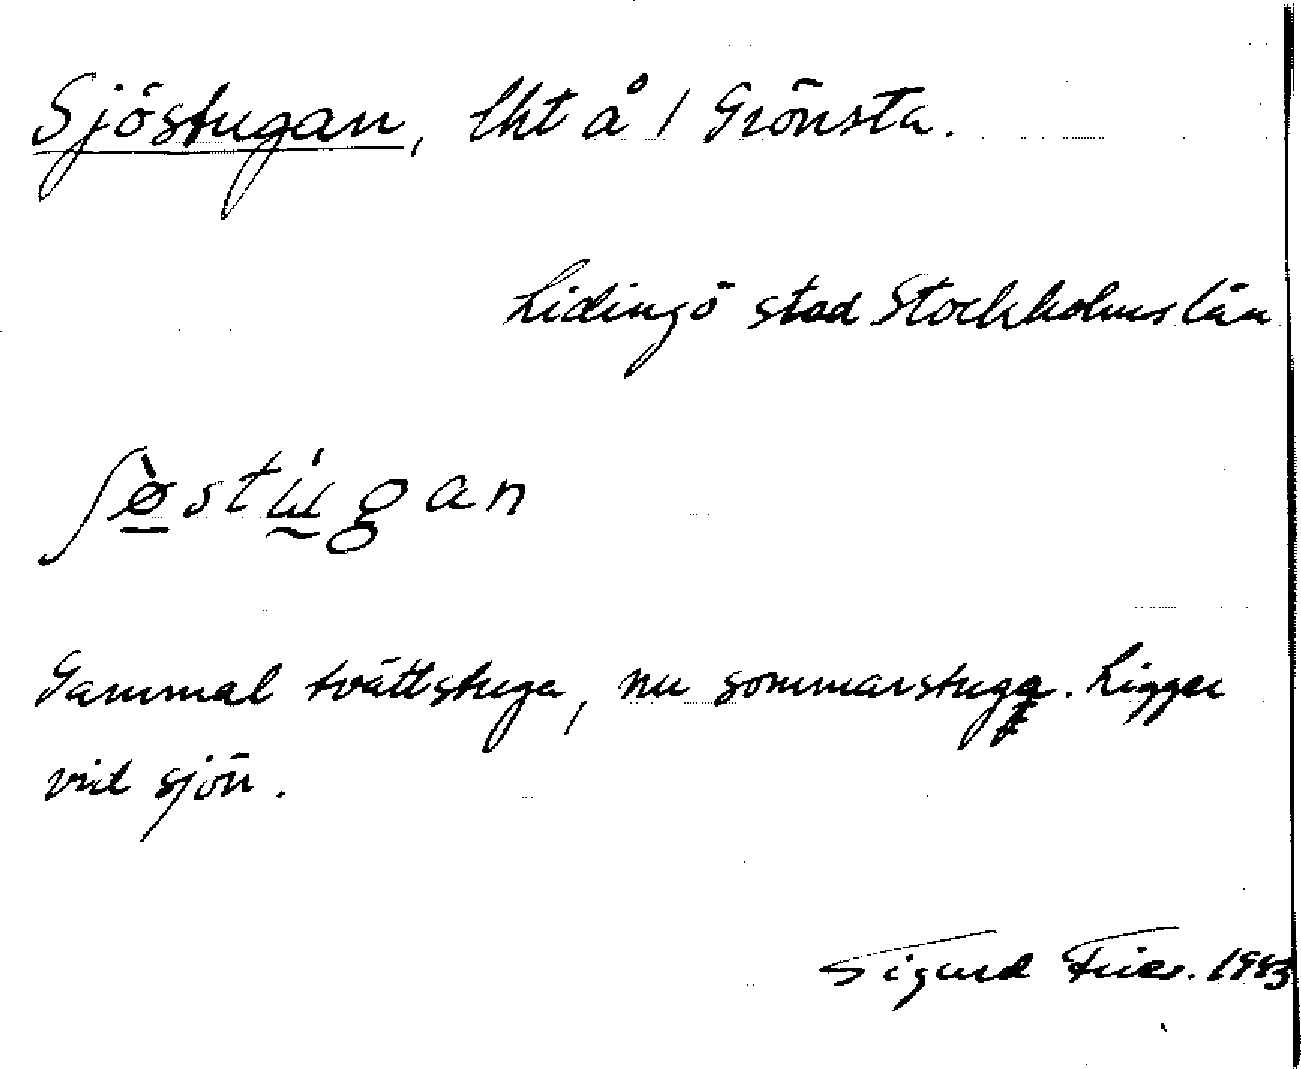 Sjöstugan, lht å / Grönsta.
Lidingö stad Stockholms län
ʃø̠̀stṵ́gan
Gammal tvättstuga, nu sommarstuga. Ligger
vid sjön.
Sigurd Fries. 1983